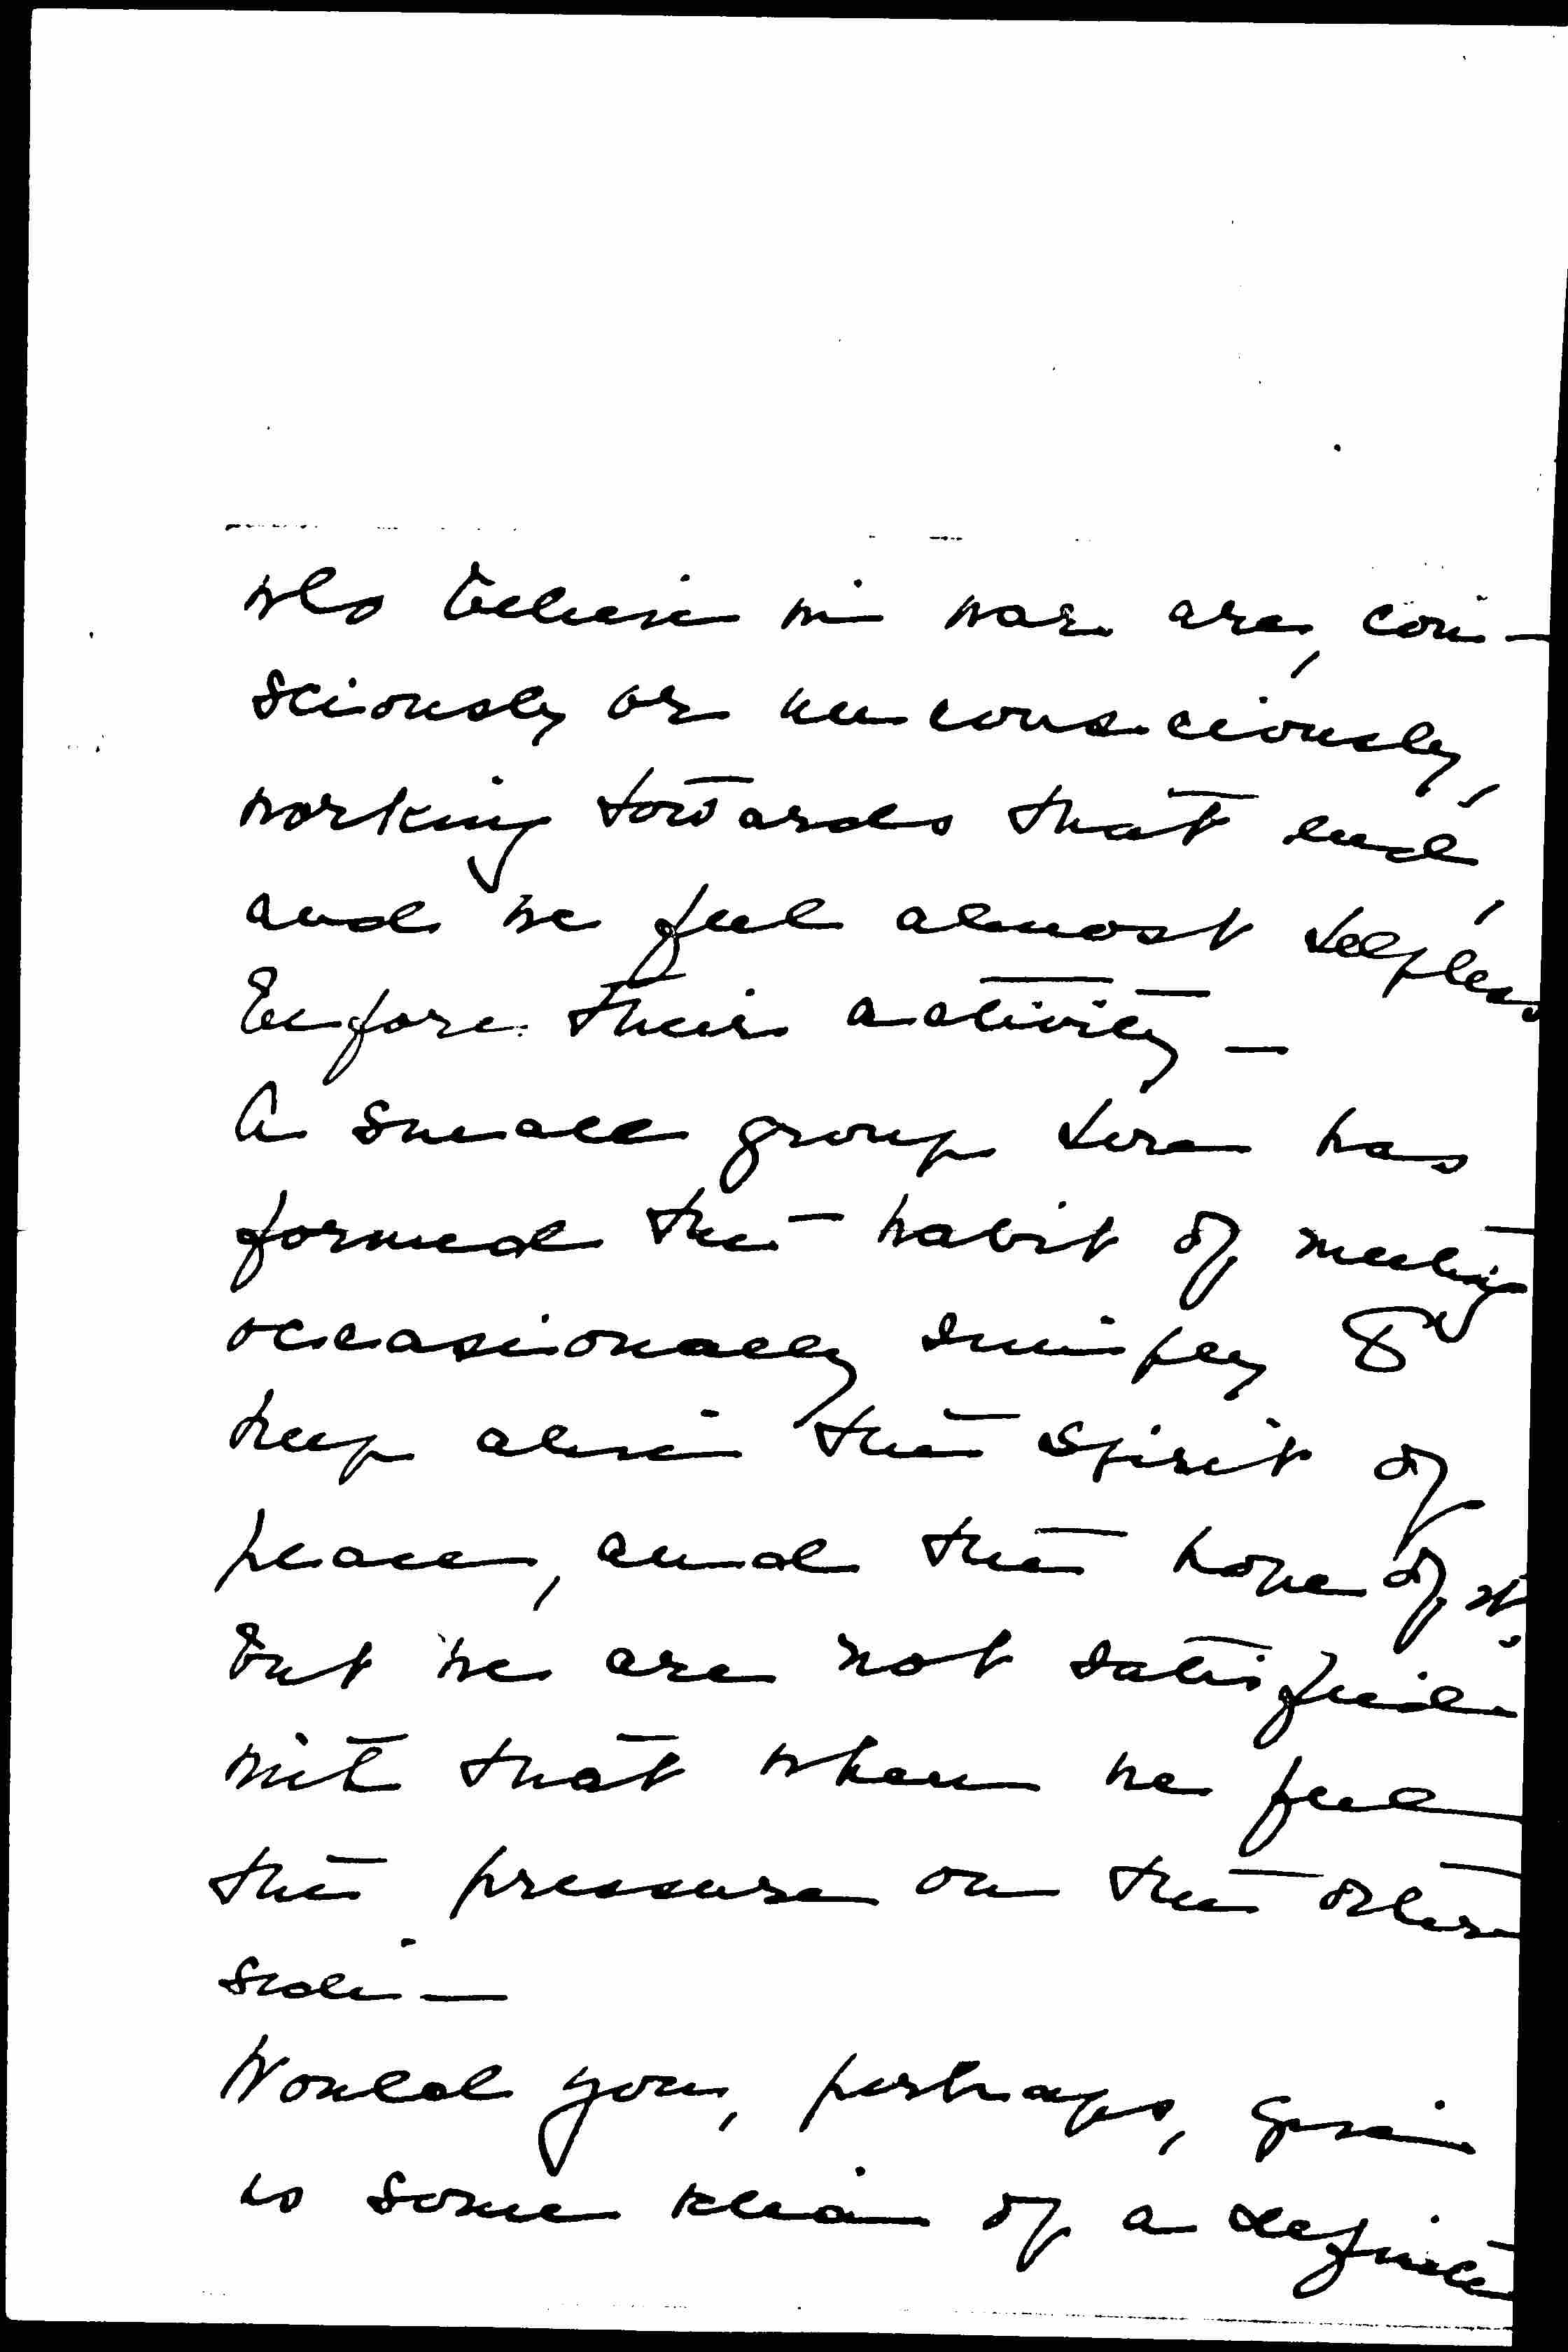 who believe in war are, con-
sciously or unconsciously,
working towards that end,
and we feel almost helpless
before their activity —
A small group here has
formed the habit of meeting
occasionally simply to
keep alive the spirit of
peace, and the hope of it,
but we are not satisfied
with that when we feel
the pressure on the other
side —
Would you, perhaps, give
us some idea of a definite